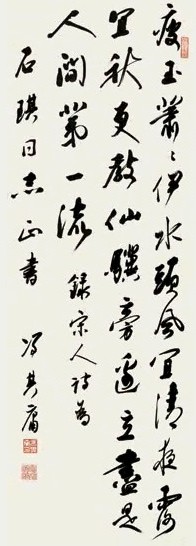 瘦玉蕭〻伊水頭風宜清夜露
宜秋更教仙驥旁邊立盡是
人間第一流 錄宋人詩為
石琪同志正書 馮其庸